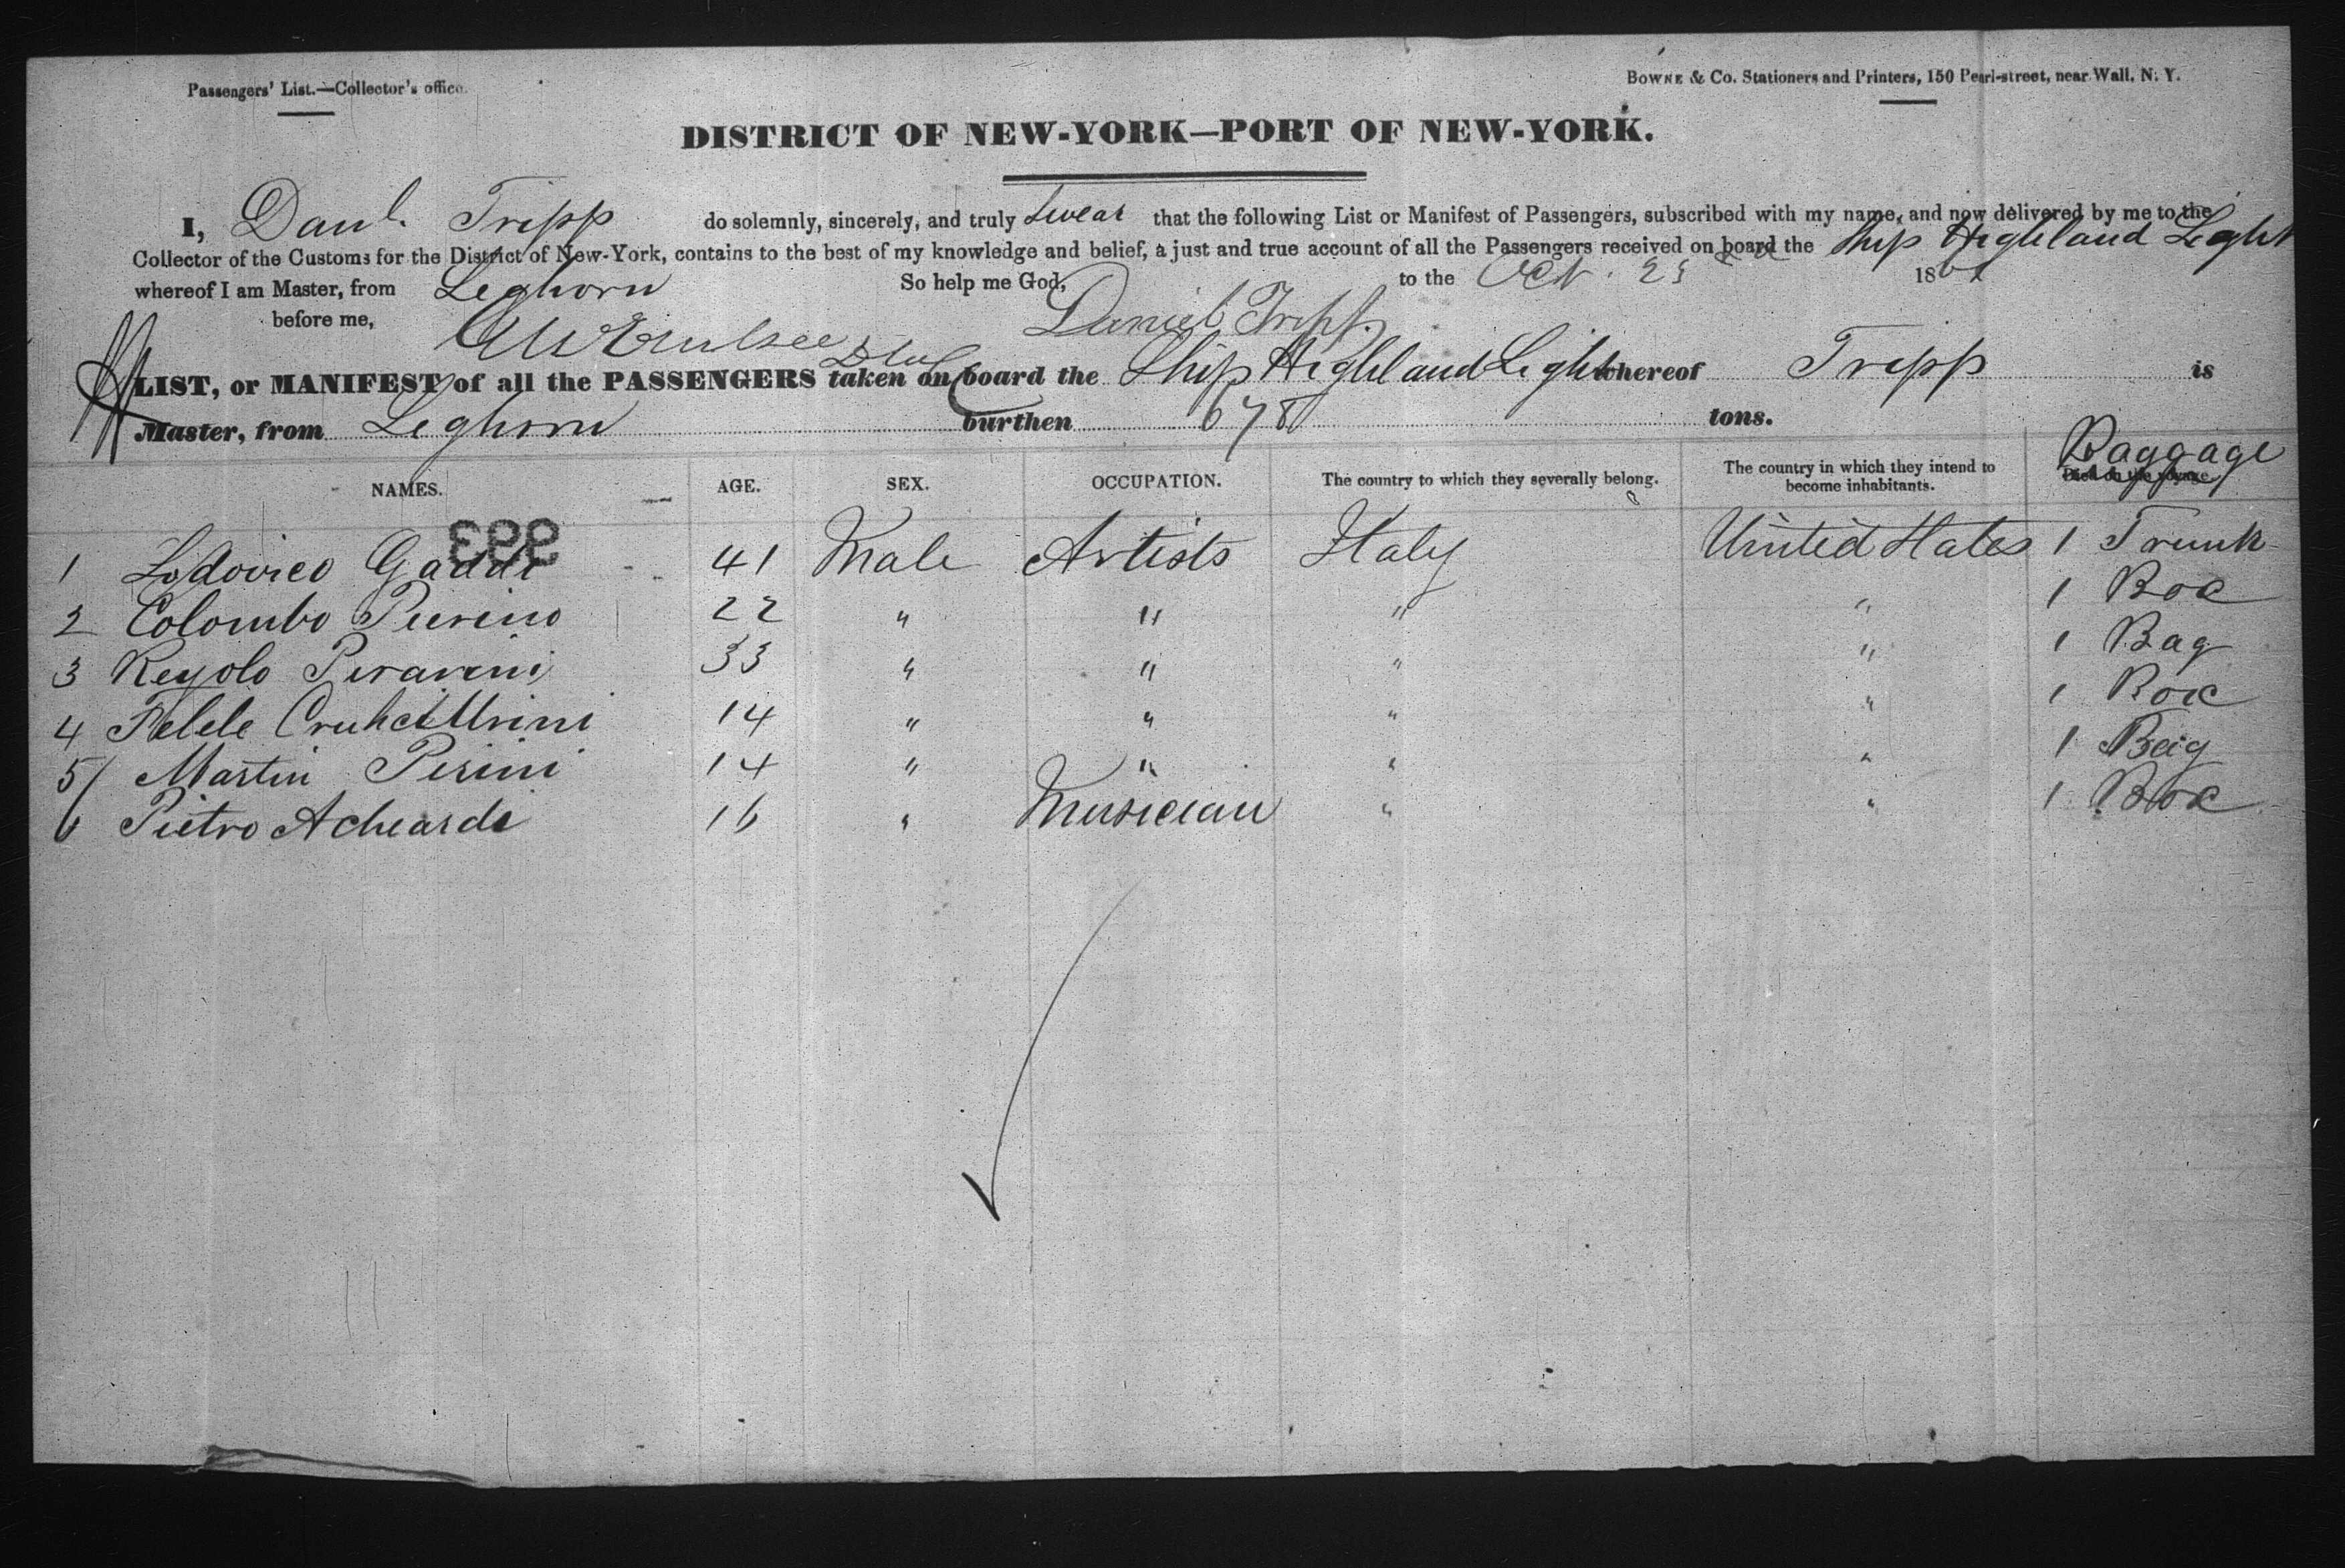 Passengers' List.—Collector's office.
BOWNE & Co. Stationers and Printers, 150 Pearl-street, near Wall, N. Y.
DISTRICT OF NEW-YORK—PORT OF NEW-YORK.
I, Danl. Tripp do solemnly, sincerely, and truly Swear that the following List or Manifest of Passengers, subscribed with my name, and now delivered by me to the
Collector of the Customs for the District of New-York, contains to the best of my knowledge and belief, a just and true account of all the Passengers received on board the Ship Highland Light
whereof I am Master, from Leghorn So help me God, to the Oct. 186
before me, Daniel Tripp
LIST, or MANIFEST of all the PASSENGERS taken on board the Ship Highland Light whereof Tripp is
Master, from Leghorn burthen 678 tons.
NAMES. AGE. SEX. OCCUPATION. The country to which they severally belong. The country in which they intend to become inhabitants. Died on the voyage. Baggage
393
1 Lodovico Gaddi 41 Male Artists Italy United States 1 Trunk
2 Colombo 22 " " " " 1 Box
3 33 " " " " 1 Bag
4 14 " " " " 1 Box
5 Martin Pisini 14 " " " " 1 Bag
6 Pietro Acheardi 16 " Musician " " 1 Box